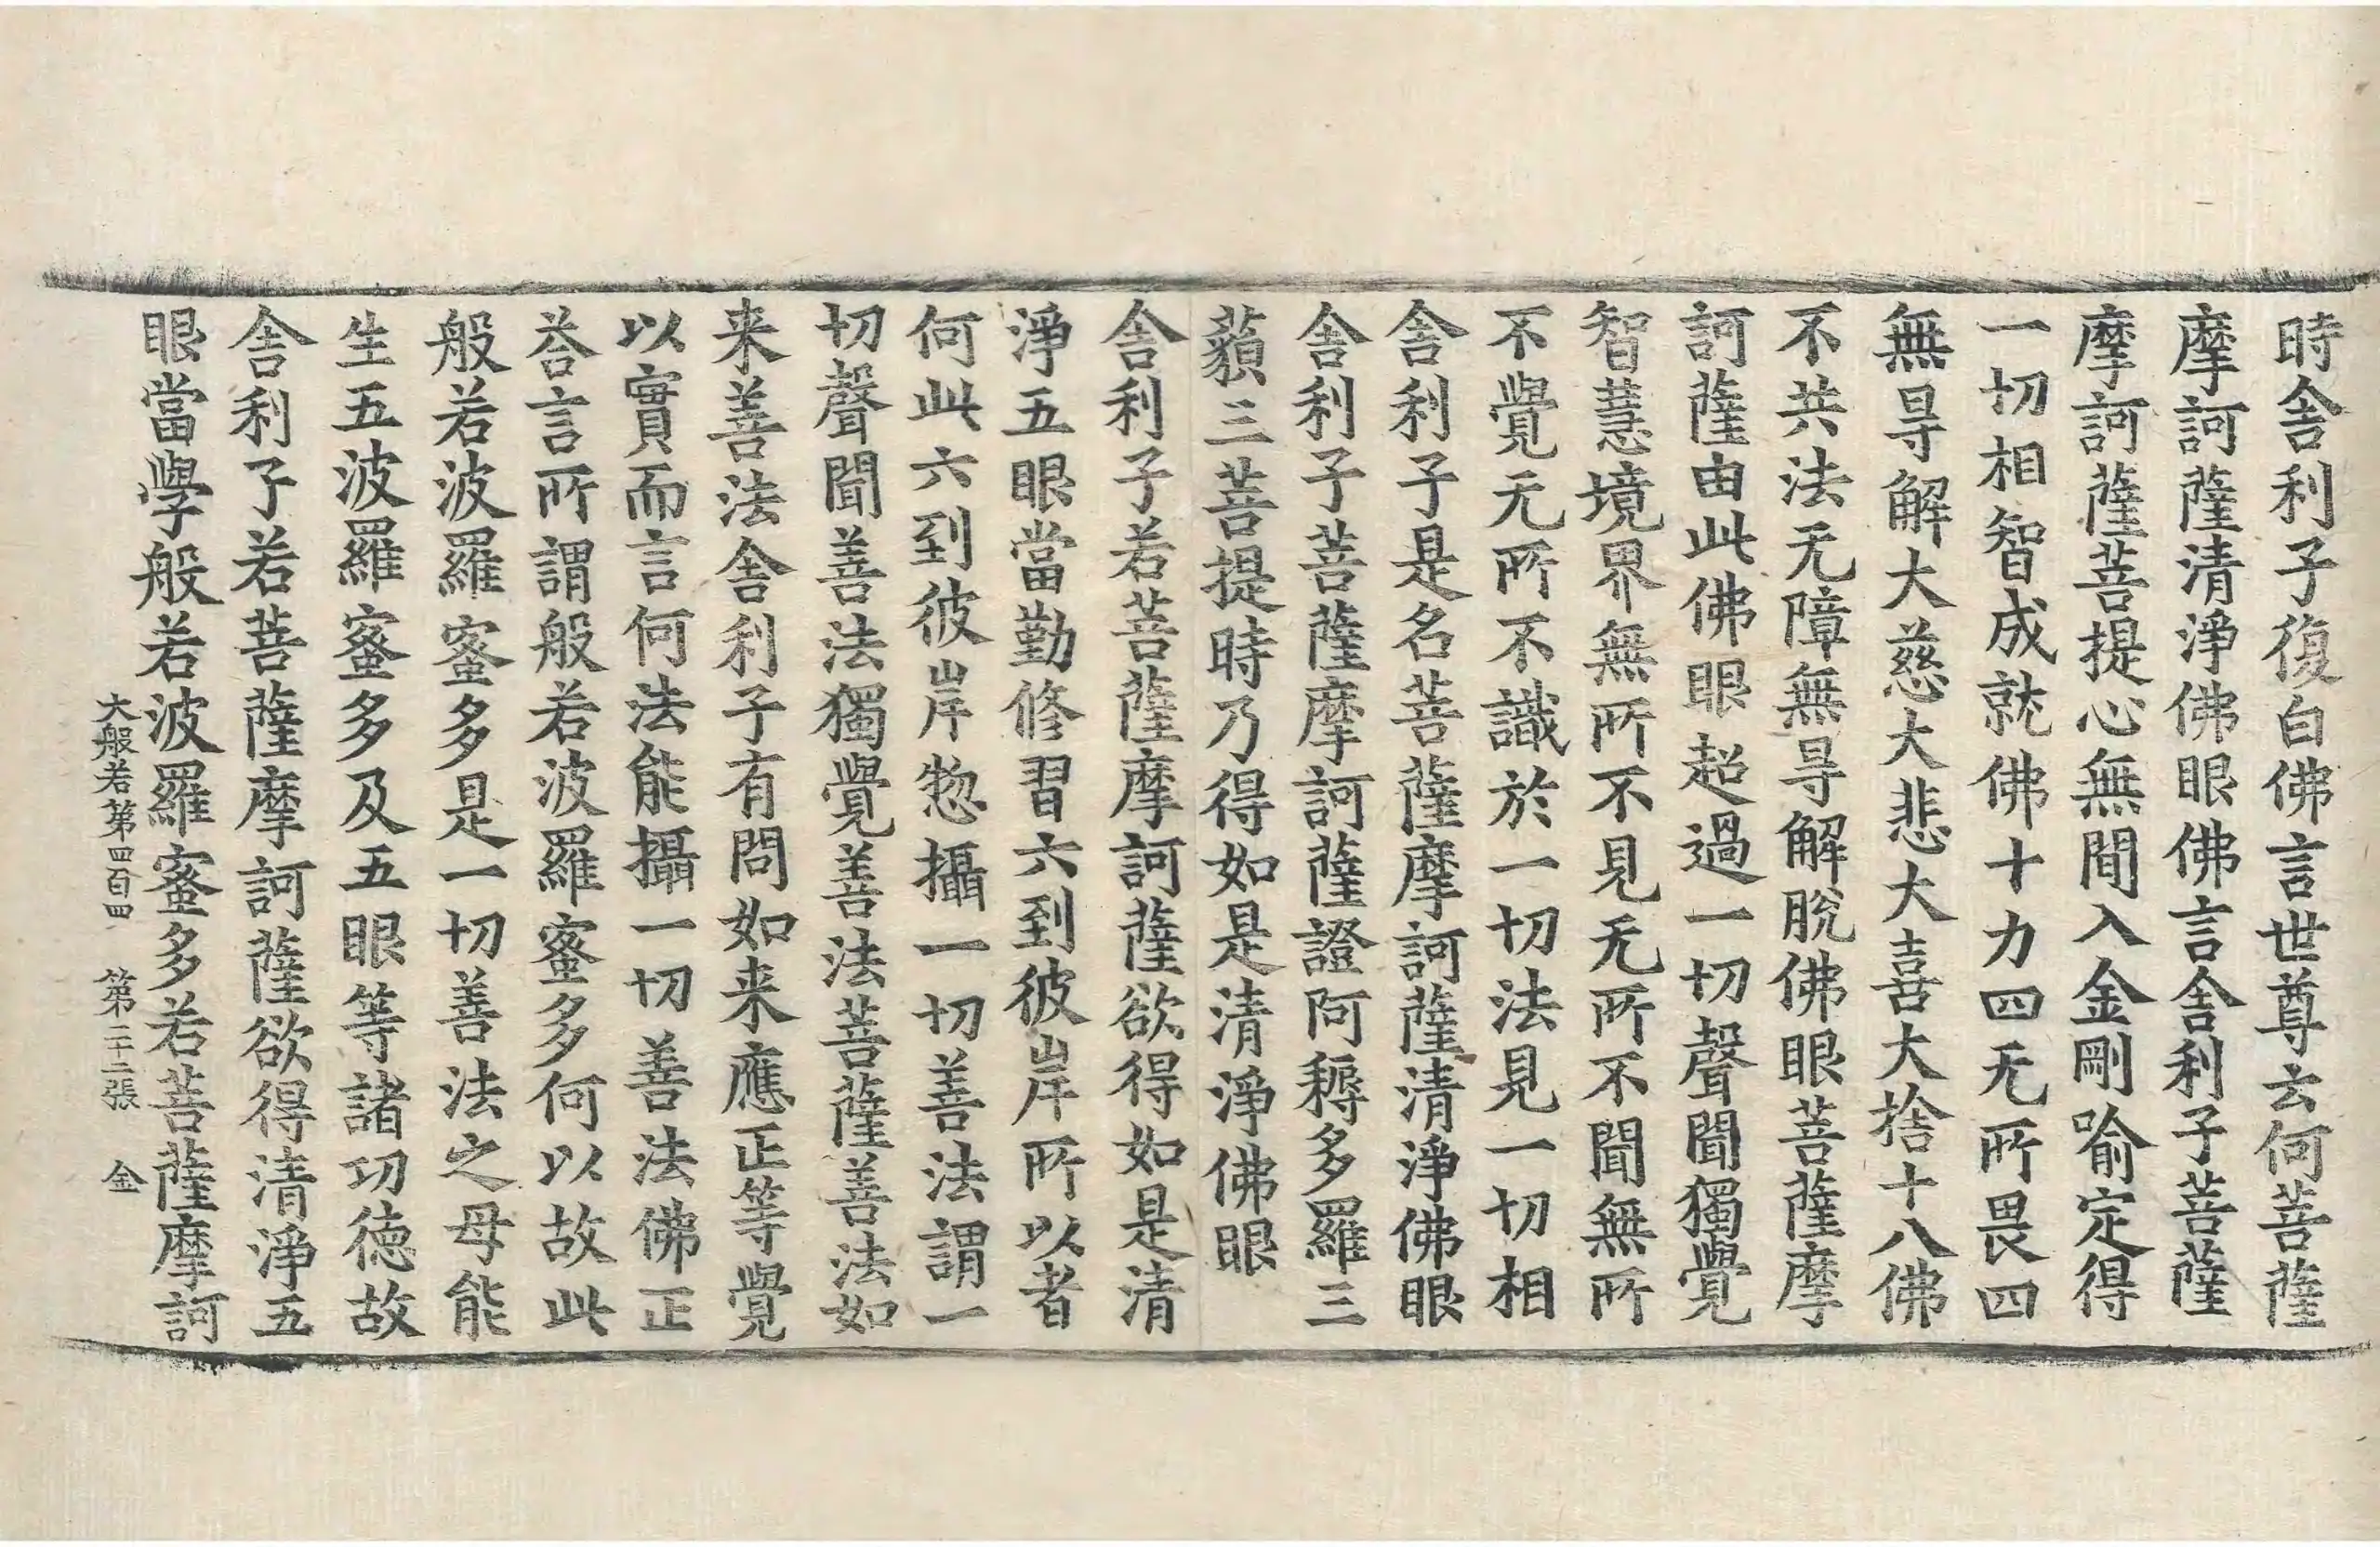 時舎利子復白佛言世尊云何菩薩
摩訶薩清淨佛眼佛言舎利子菩薩
摩訶薩菩提心無閒入金剛喻定得
一切相智成就佛十力四无所畏四
無㝵解大慈大悲大喜大捨十八佛
不共法无障無㝵解脫佛眼菩薩摩
訶薩由此佛眼超過一切聲聞獨覺
智慧境界無所不見无所不聞無所
不覺无所不識於一切法見一切相
舎利子是名菩薩摩訶薩清淨佛眼
舎利子菩薩摩訶薩證阿耨多羅三
藐三菩提時乃得如是清淨佛眼
舎利子若菩薩摩訶薩欲得如是清
淨五眼當勤修習六到彼岸所以者
何此六到彼岸惣攝一切善法謂一
切聲聞善法獨覺善法菩薩善法如
来善法舎利子有問如来應正等覺
以實而言何法能攝一切善法佛正
荅言所謂般若波羅蜜多何以故此
般若波羅蜜多是一切善法之母能
生五波羅蜜多及五眼等諸功徳故
舎利子若菩薩摩訶薩欲得清淨五
眼當學般若波羅蜜多若菩薩摩訶
大般若第四百四 第二十二張 金